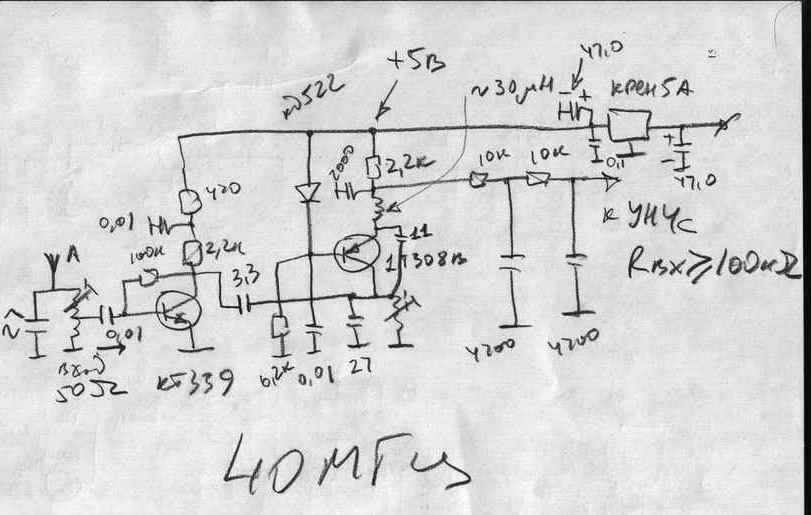 47,0
+5В
КД522
~30μH
- +
КРЕН5А
2000
2,2к
10к
10к
0,1
+
-
47,0
470
0,01
А
100к
2,2к
3,3
11
1Т308В
к УНЧ
Rвх ≥ 100кΩ
~
0,01
Вход
50Ω
КТ339
6,2к
0,01
27
4700
4700
40 МГц